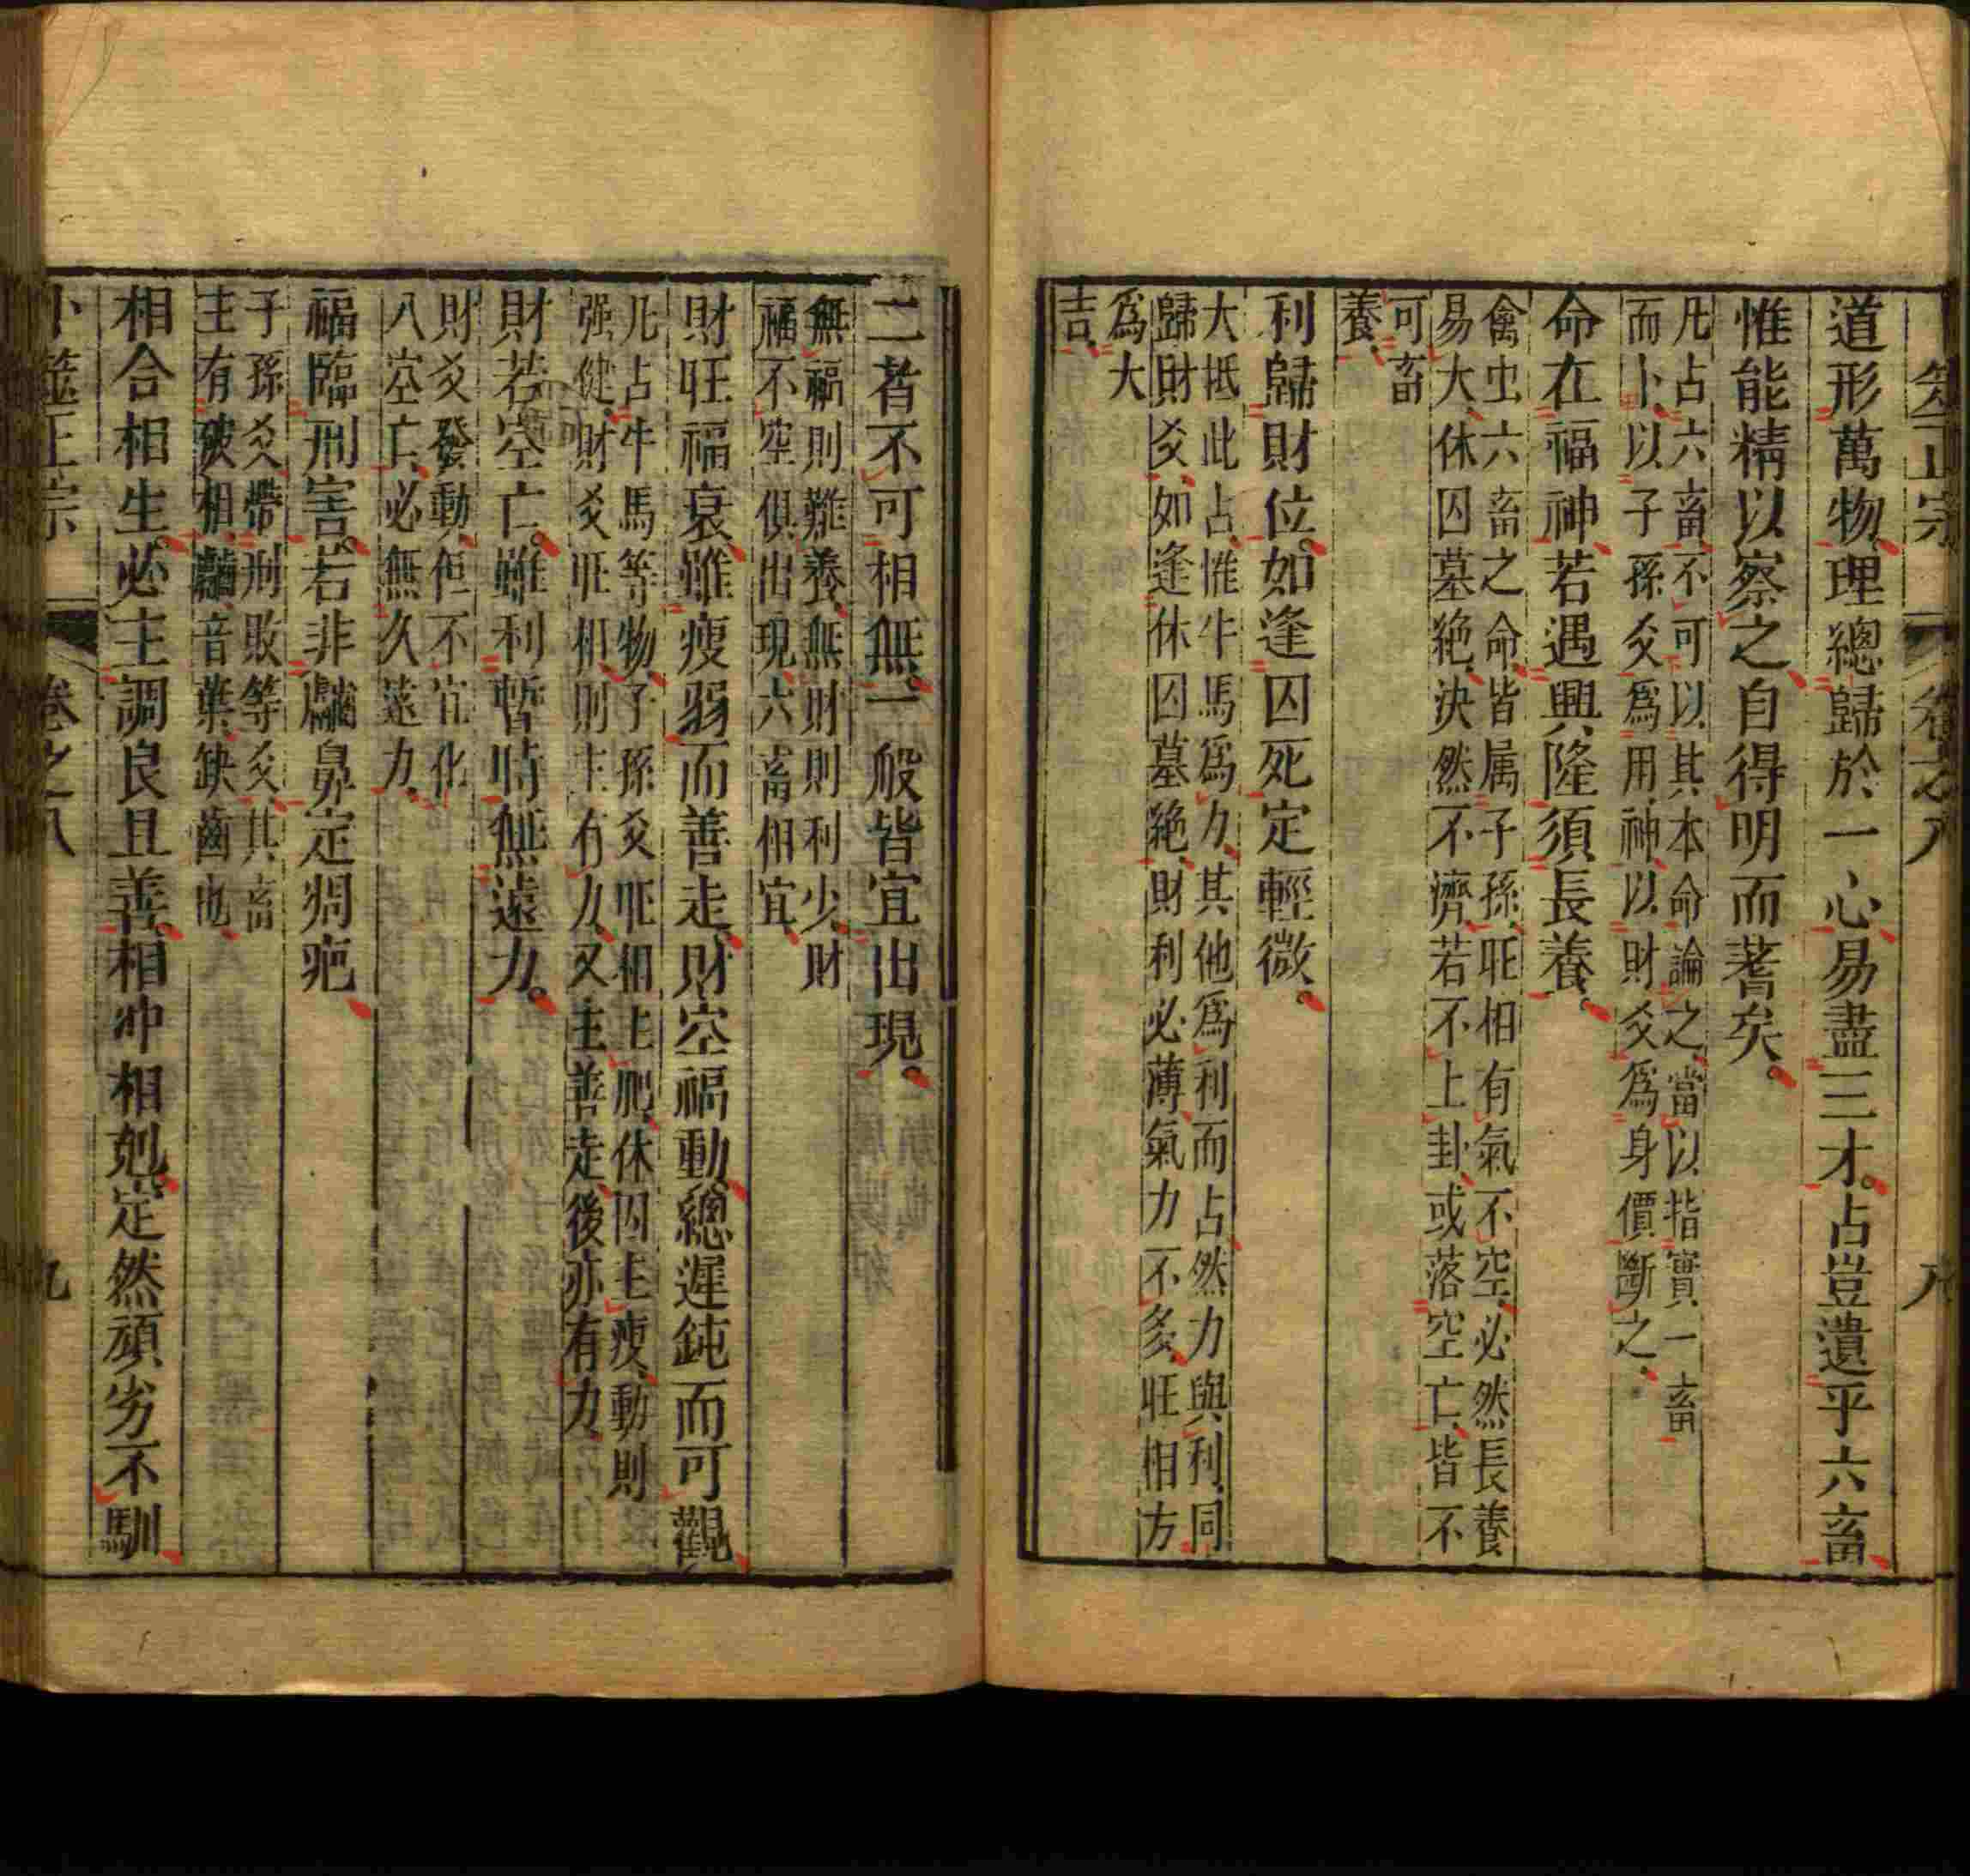 筮正宗 卷之八 八
道形萬物理總歸於一心易盡三才占豈遺乎六畜
惟能精以察之自得明而著矣
凡占六畜不可以其本命論之當以指實一畜
而卜以子孫爻爲用神以財爻爲身價斷之
命在福神若遇興隆須長養
禽虫六畜之命皆属子孫旺相有氣不空必然長養
易大休囚墓絶決然不濟若不上卦或落空亡皆不
可畜
養
利歸財位如逢囚死定輕微
大抵此占惟牛馬爲力其他爲利而占然力與利同
歸財爻如逢休囚墓絶財利必薄氣力不多旺相方
爲大
吉
二者不可相無一般皆宜出現
無福則難養無財則利少財
福不空俱出現六畜相宜
財旺福衰雖瘦弱而善走財空福動總遲鈍而可觀
凡占牛馬等物子孫爻旺相主肥休囚主瘦動則
强健財爻旺相則主有力又主善走後亦有力
財若空亡雖利暫時無遠力
財爻發動但不宜化
入空亡必無久遠力
福臨刑害若非鬬鼻定凋疤
子孫爻帶刑敗等爻其畜
主有破相音葉缺齒也
相合相生必主調良且善相冲相剋定然頑劣不馴
卜筮正宗 卷之八 九